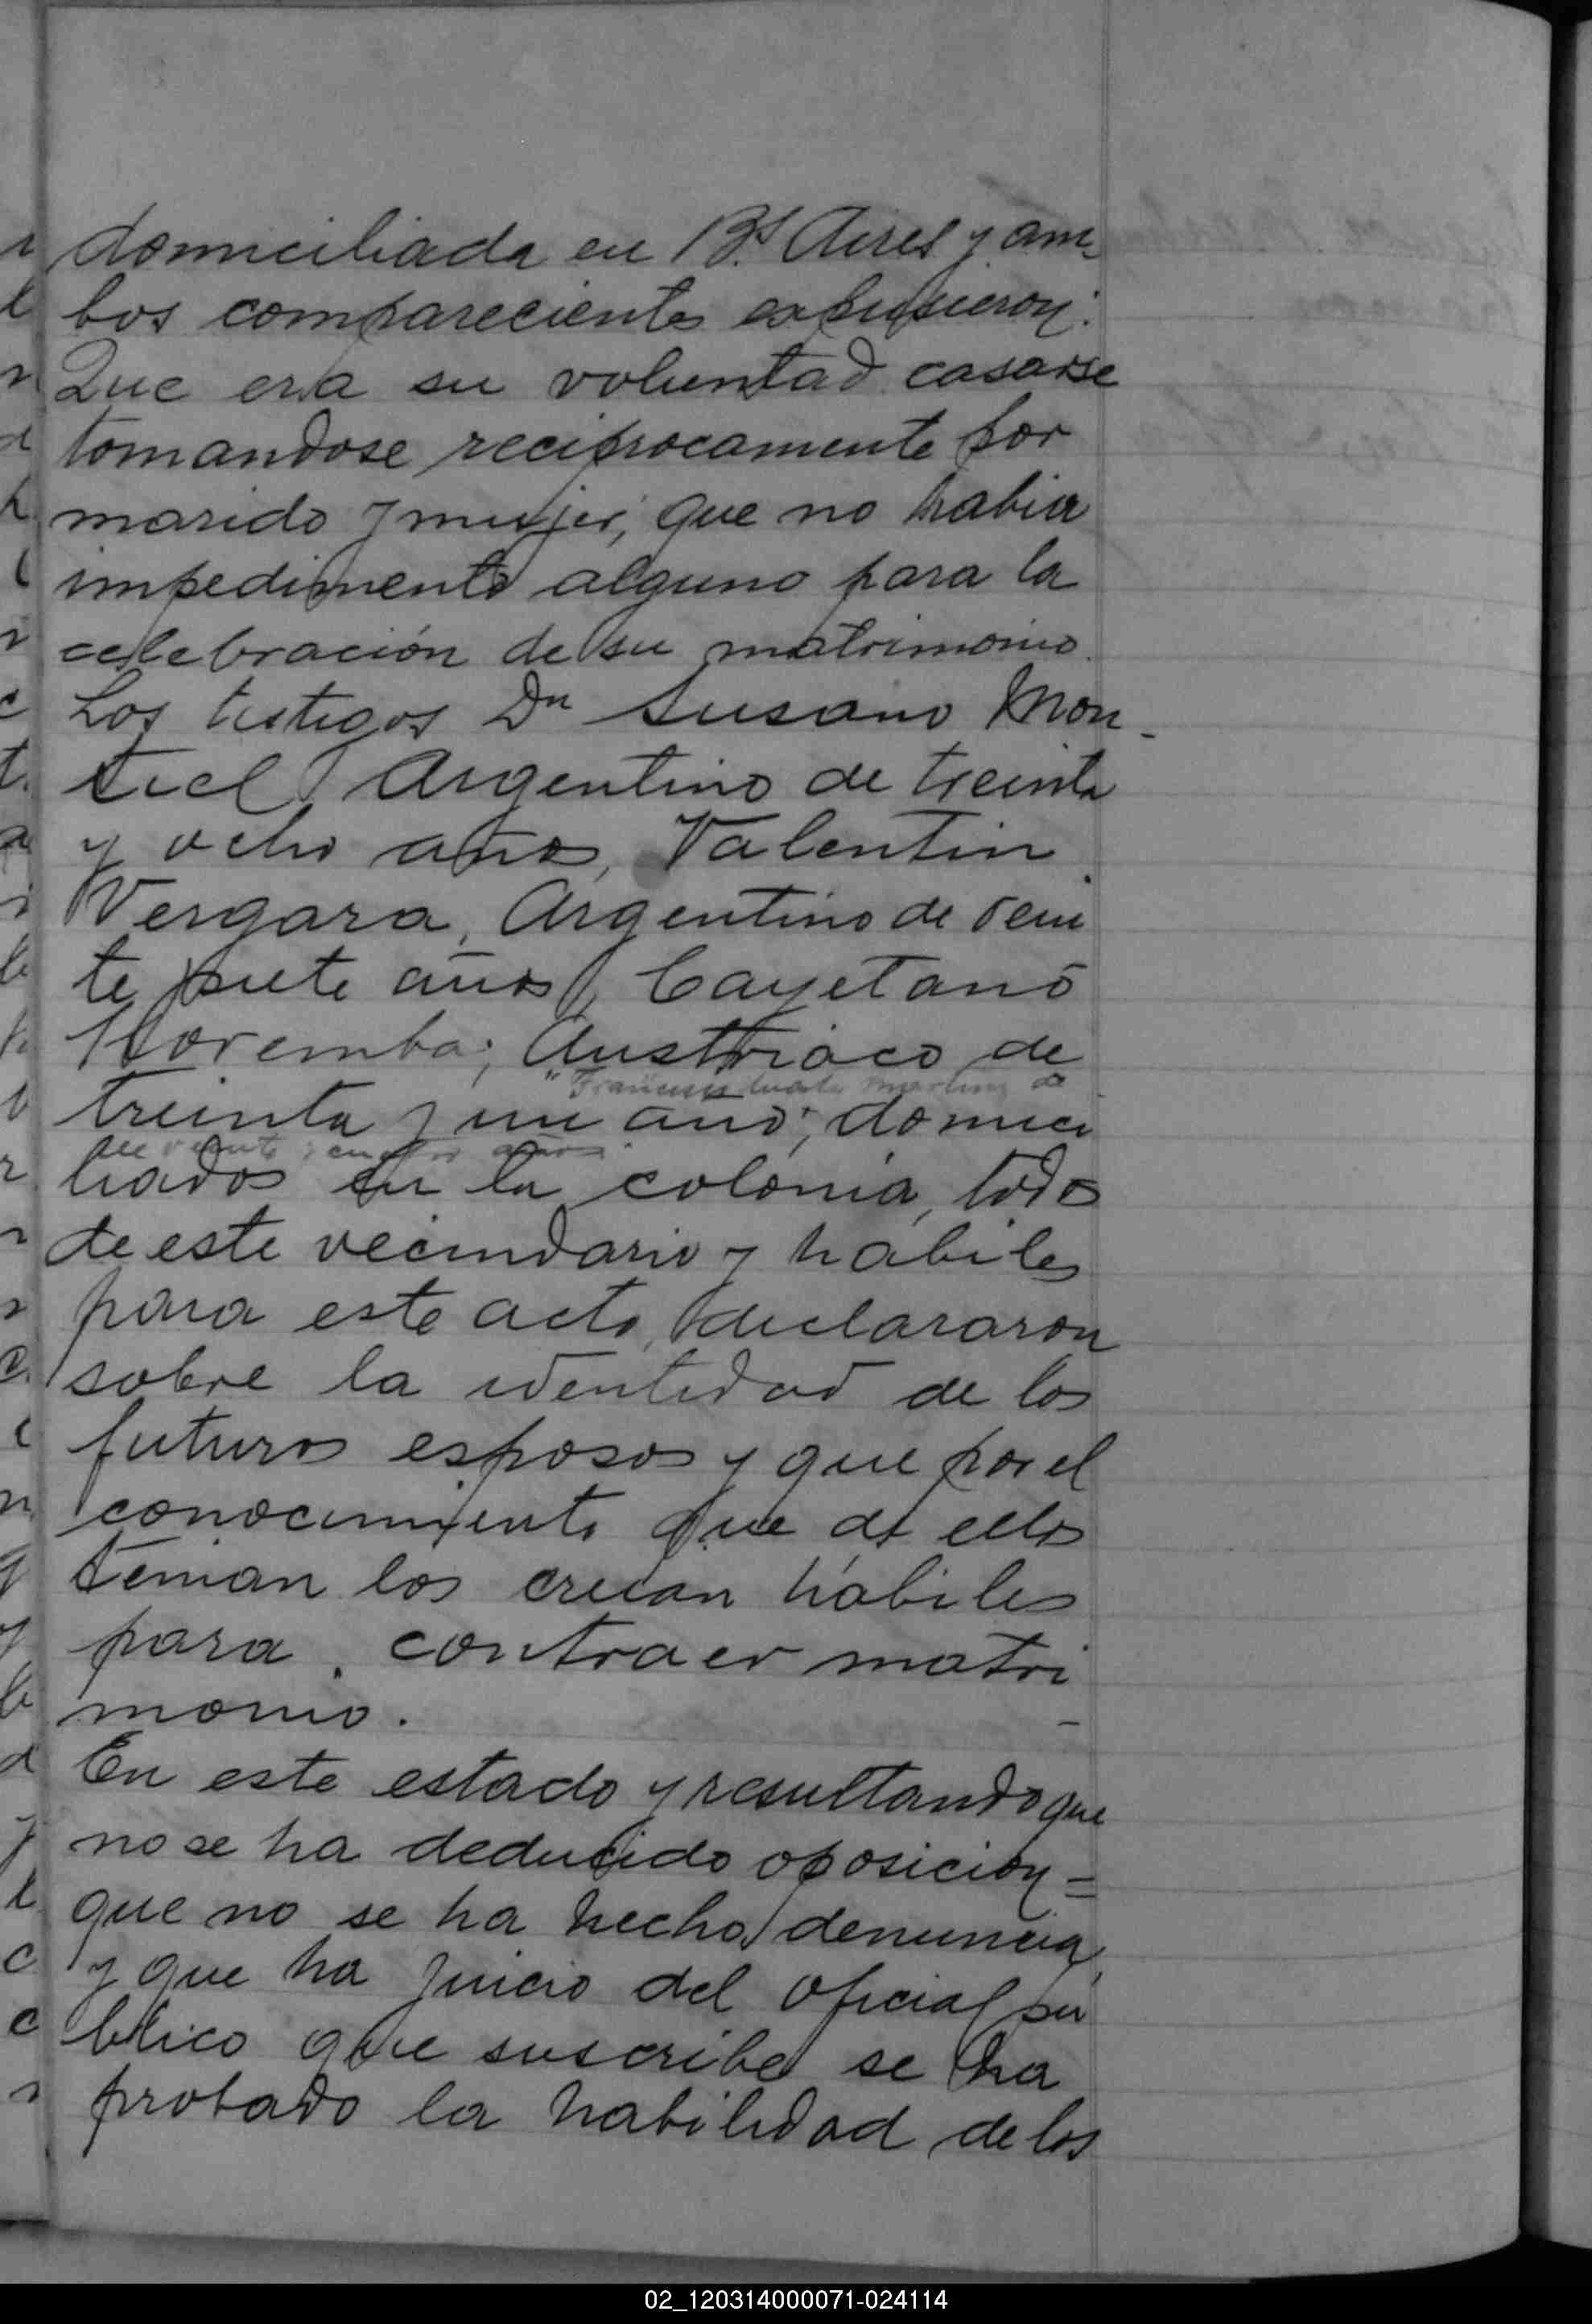 domiciliada en Bs. Aires y am-
bos comparecientes expusieron:
Que era su voluntad casarse
tomandose reciprocamente por
marido y mujer, que no habia
impedimento alguno para la
celebración de su matrimonio.
Los testigos Dn Susano Mon-
tiel Argentino de treinta
y ocho años, Valentin
Vergara, Argentino de vein
te siete años, Cayetano
Argentino Austriaco de
treinta y un año; domici
de veinte y cuatro años
liados en la colonia, todos
de este vecindario y hábiles
para este acto, declararon
sobre la identidad de los
futuros esposos y que por el
conocimiento que de ellos
tenian los creian hábiles
para contraer matri
monio.
En este estado y resultando que
no se ha deducido oposicion =
que no se ha hecho denuncia,
y que ha juicio del oficial pu
blico que suscribe se ha
probado la habilidad de los
02_120314000071-024114